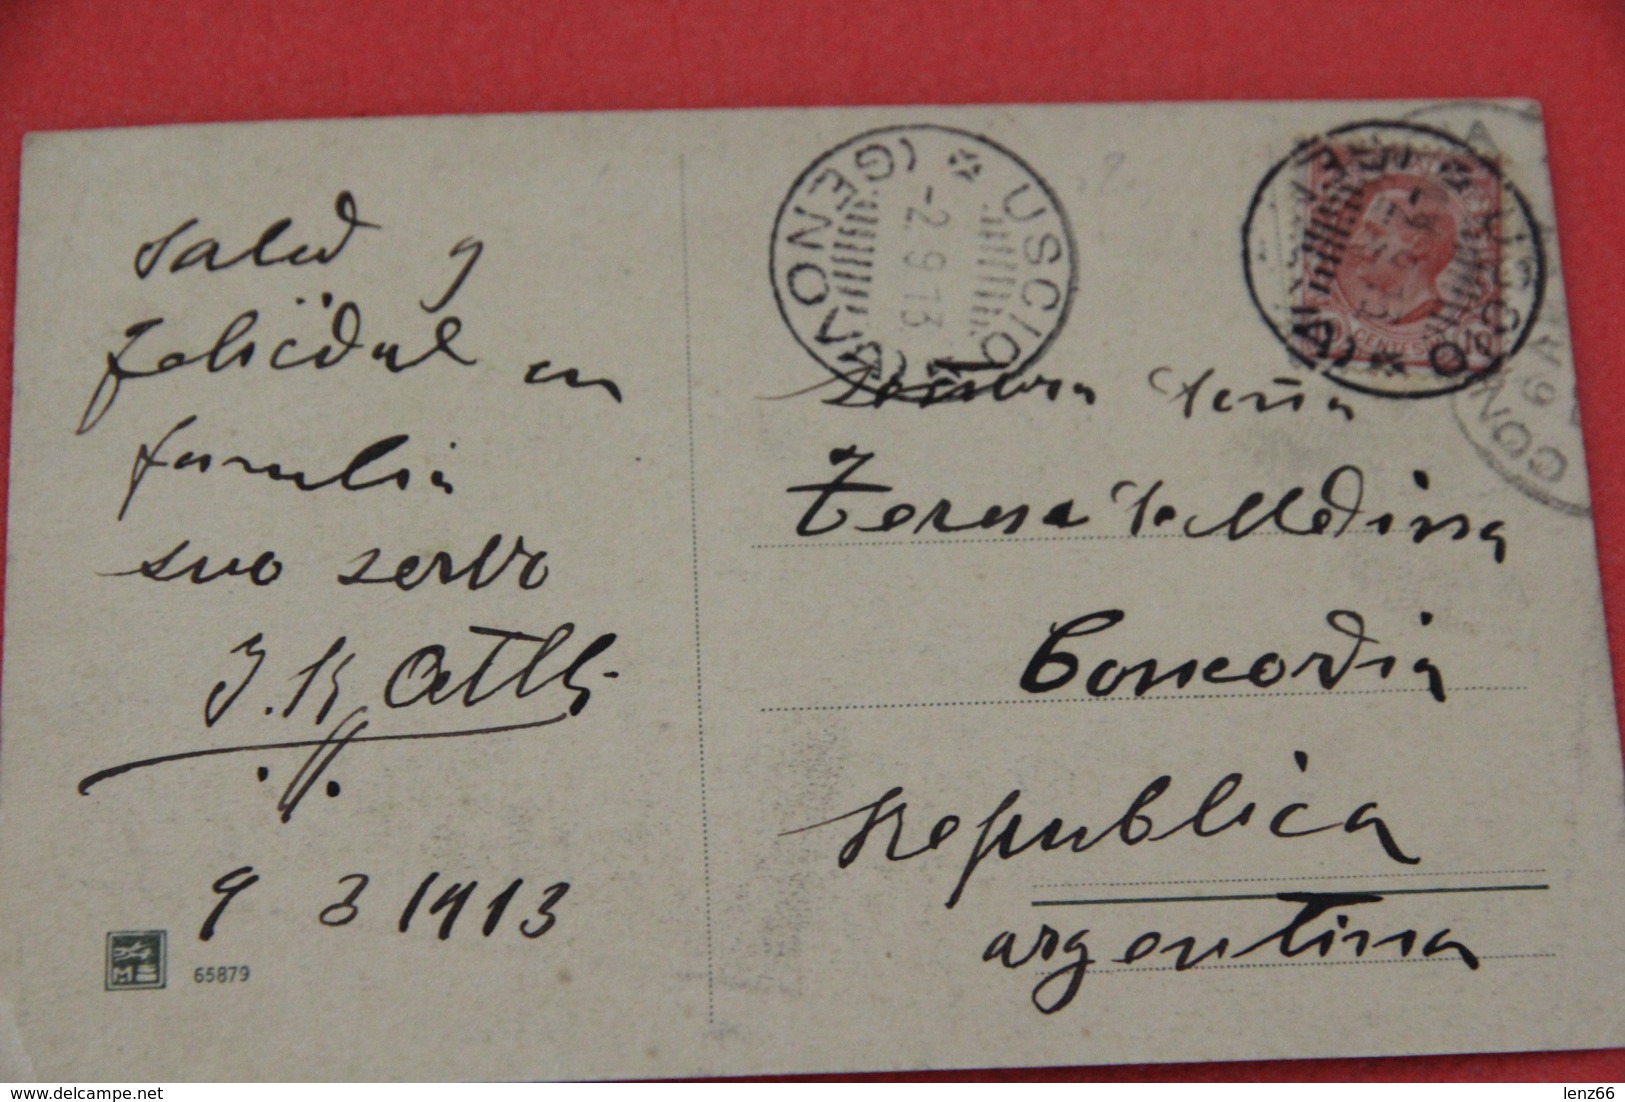 salud y
felicidad en
familia
suo servo
9 3 1913
65879
USCIO
(GENOVA)
-2.9.13
Teresa de Medina
Concordia
Republica
argentina
CENTES
CON
delcampe.net
lenz66